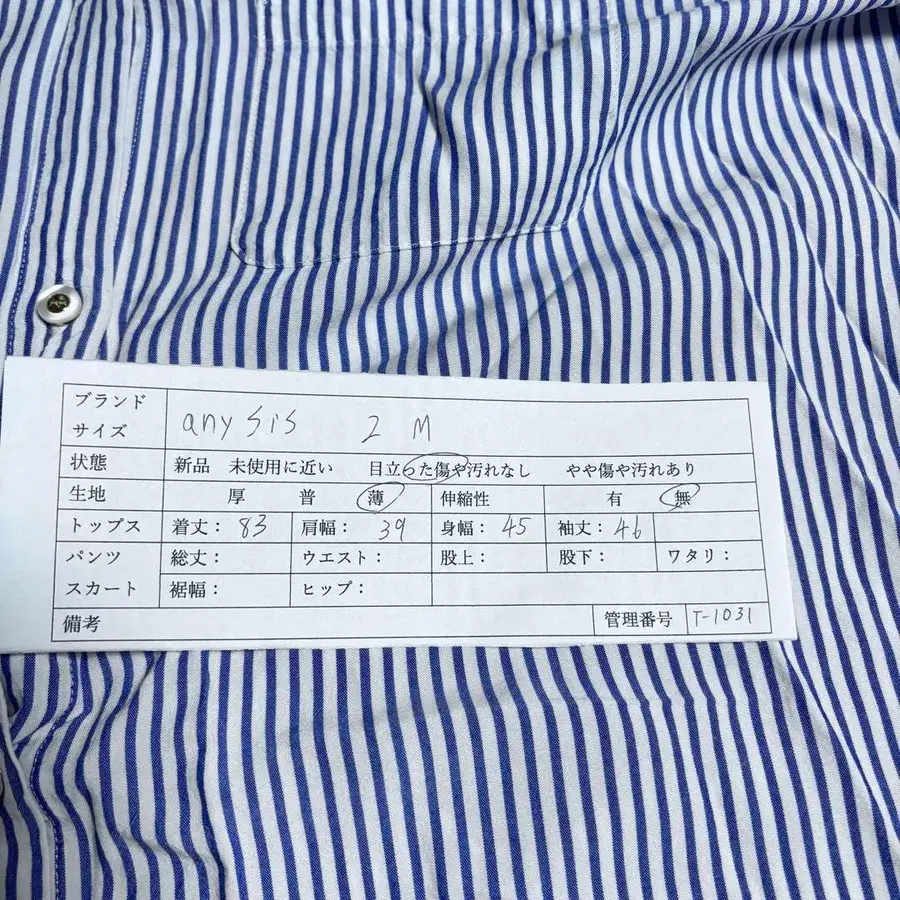 ブランド
サイズ
any SiS 2 M
状態 新品 未使用に近い 目立った傷や汚れなし やや傷や汚れあり
生地 厚 普 薄 伸縮性 有 無
トップス 着丈：83 肩幅：39 身幅：45 袖丈：46
パンツ 総丈： ウエスト： 股上： 股下： ワタリ：
スカート 裾幅： ヒップ：
備考 管理番号 T-1031